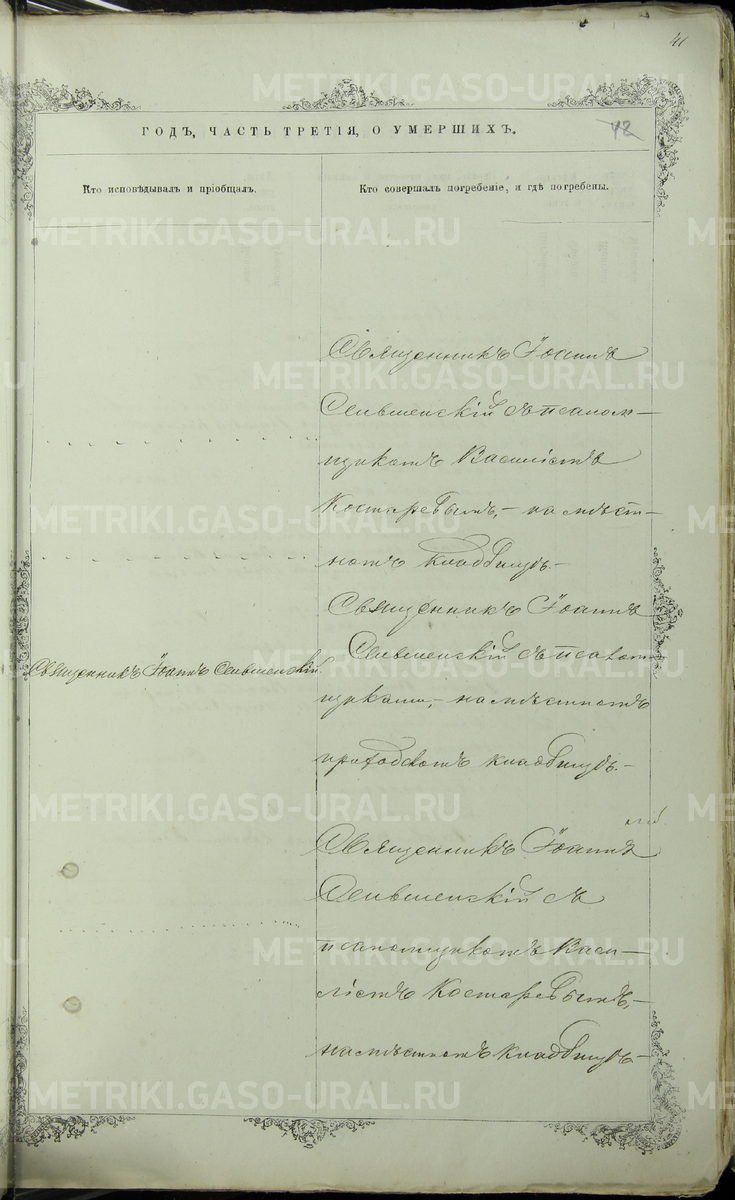 42
ГОДЪ, ЧАСТЬ ТРЕТІЯ, О УМЕРШИХЪ.
Кто исповѣдывалъ и пріобщалъ.
Кто совершалъ погребеніе, и гдѣ погребены.
Священникъ Іоаннъ
съ псалом-
щикомъ Василіемъ
Костаревымъ, - на мѣст-
номъ кладбищѣ. -
Священникъ Іоаннъ
Священникъ Іоаннъ
съ псалом
щиками, - на мѣстномъ
приходскомъ кладбищѣ. -
Священникъ Іоаннъ
съ
псаломщикомъ Васи-
ліемъ Костаревымъ, -
на мѣстномъ кладбищѣ -
METRIKI.GASO-URAL.RU